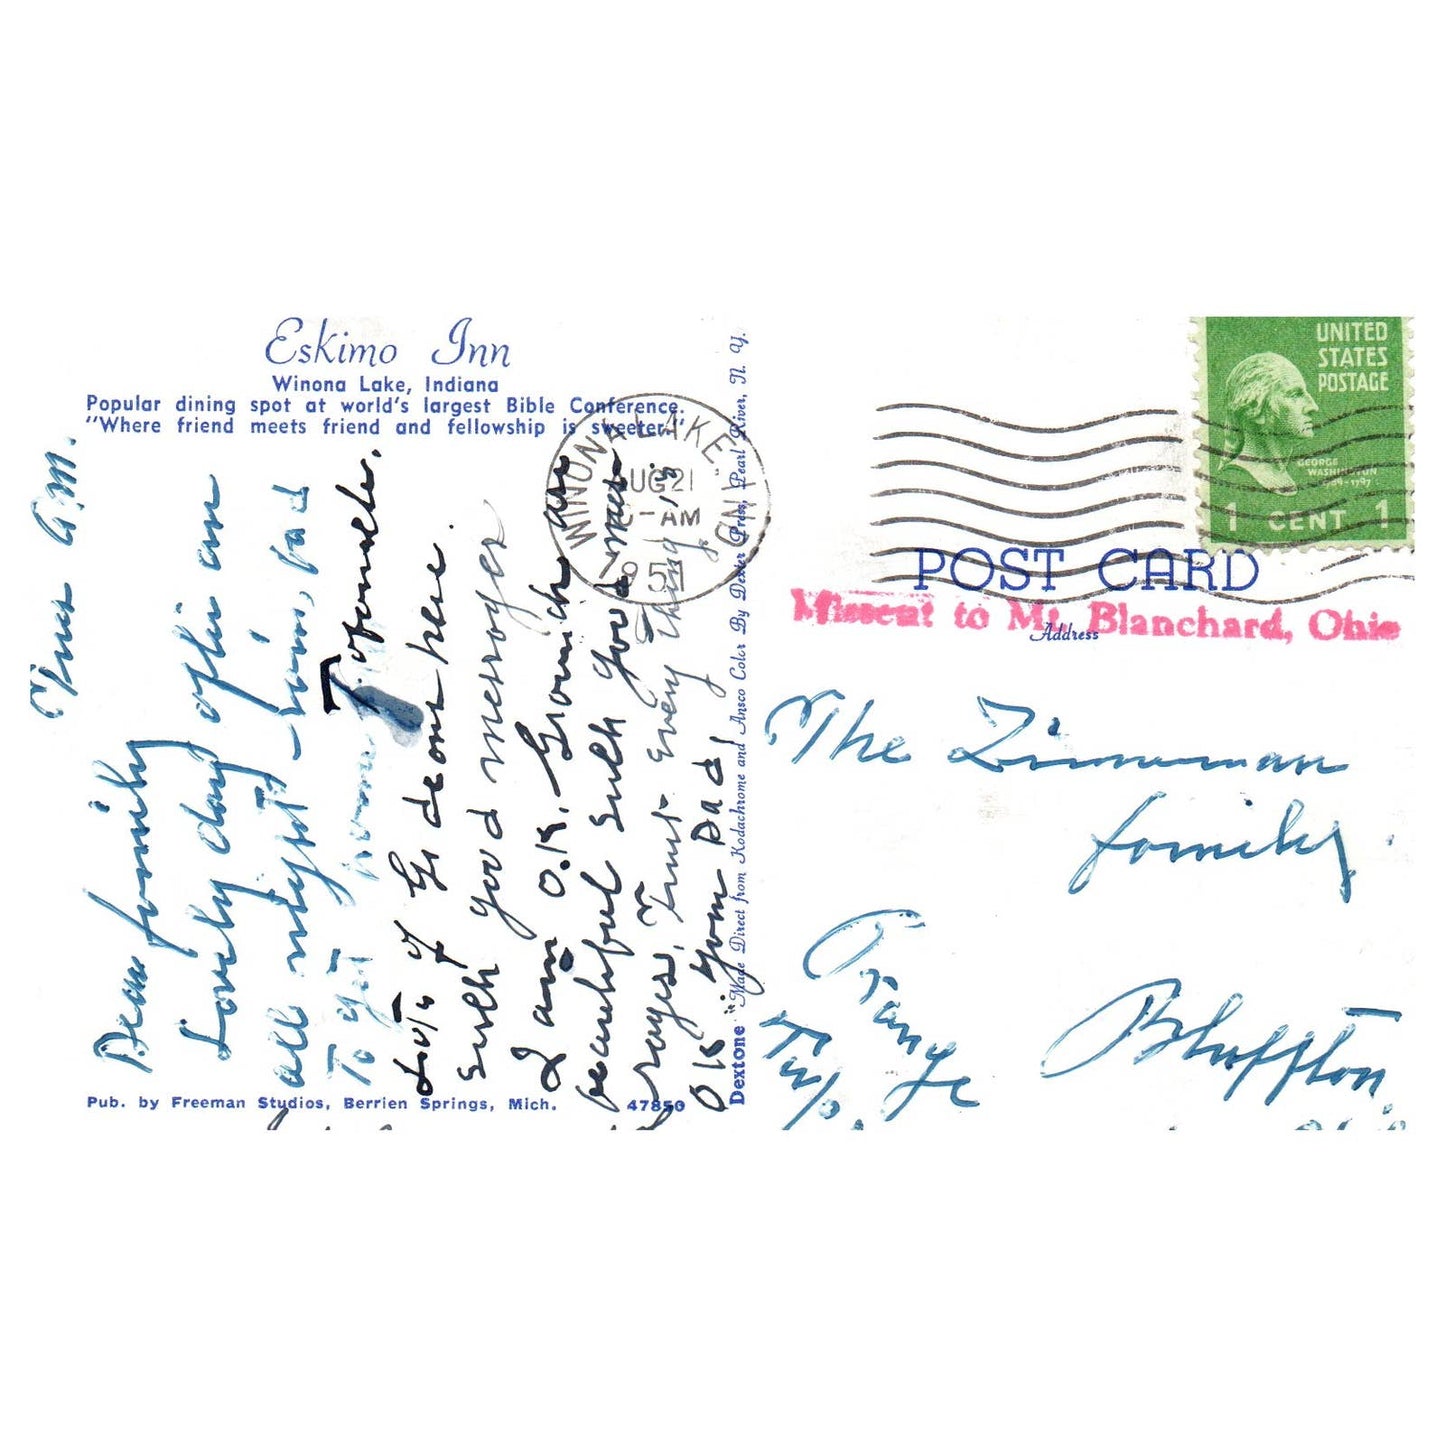 Eskimo Inn
Winona Lake, Indiana
Popular dining spot at world's largest Bible Conference.
"Where friend meets friend and fellowship is sweeter."
Tues a.m.
Dear family
Lovely day after an
all night rain, had
to get home
Tabernacle.
Lots of Gideons here.
Such good messages
I am O.K.
beautiful such good
Trust every thing is
OK your Dad
Pub. by Freeman Studios, Berrien Springs, Mich.
47850
Dextone "Made Direct from Kodachrome and Ansco Color By Dexter Press, Pearl River, N. Y.
WINONA LAKE, IND
AUG 21
AM
1951
UNITED
STATES
POSTAGE
GEORGE
WASHINGTON
1789-1797
1 CENT 1
POST CARD
Missent to Mt. Blanchard, Ohio
Address
The Zimmerman
family
Orange
Twp.
Bluffton